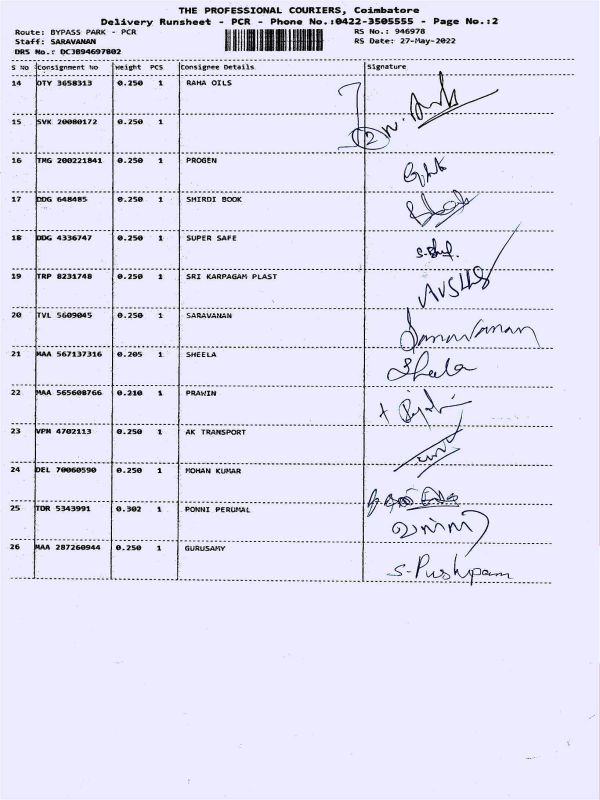 THE PROFESSIONAL COURIERS, Coimbatore
Delivery Runsheet - PCR - Phone No.:0422-3505555 - Page No.:2
Route: BYPASS PARK - PCR RS No.: 946978
Staff: SARAVANAN RS Date: 27-May-2022
DRS No.: DCJB94697802
S No Consignment No Weight PCS Consignee Details Signature
14 OTY 3658313 0.250 1 RAHA OILS
15 SVK 20080172 0.250 1 2
16 TMG 200221841 0.250 1 PROGEN
17 DDG 648485 0.250 1 SHIRDI BOOK
18 DDG 4336747 0.250 1 SUPER SAFE
19 TRP 8231748 0.250 1 SRI KARPAGAM PLAST
20 TVL 5609045 0.250 1 SARAVANAN
21 MAA 567137316 0.205 1 SHEELA Sheela
22 MAA 565608766 0.210 1 PRAWIN
23 VPM 4702113 0.250 1 AK TRANSPORT
24 DEL 70060590 0.250 1 MOHAN KUMAR
25 TOR 5343991 0.302 1 PONNI PERUMAL
26 MAA 287260944 0.250 1 GURUSAMY S-Pushpam